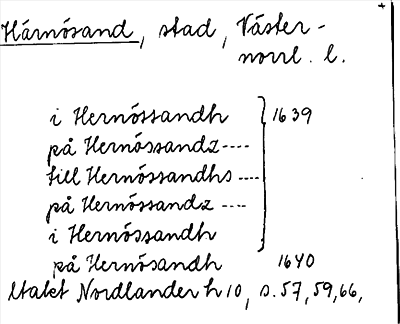 Härnösand, stad, Väster-
norrl. l.
i Hernössandh } 1639
på Hernössandz ----
till Hernössandhs ----
på Hernössandz ----
i Hernössandh
på Hernössandh 1640
Utakt Nordlander h 10, s. 57, 59, 66,